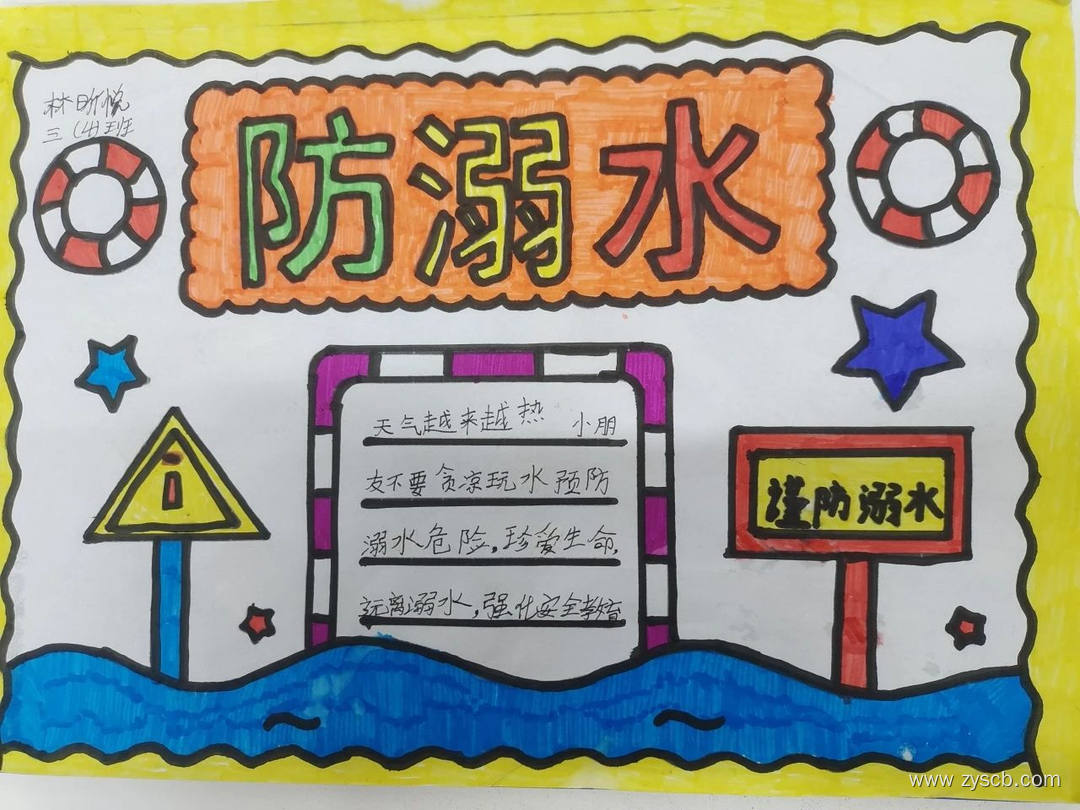 林昕悦
三（4）班
防溺水
天气越来越热 小朋
友不要贪凉玩水预防
溺水危险，珍爱生命，
远离溺水，强化安全教育
谨防溺水
www.zyscb.com